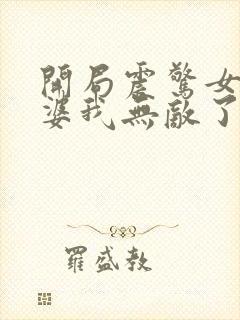 開局震驚女
婆我無敵了
羅盛教